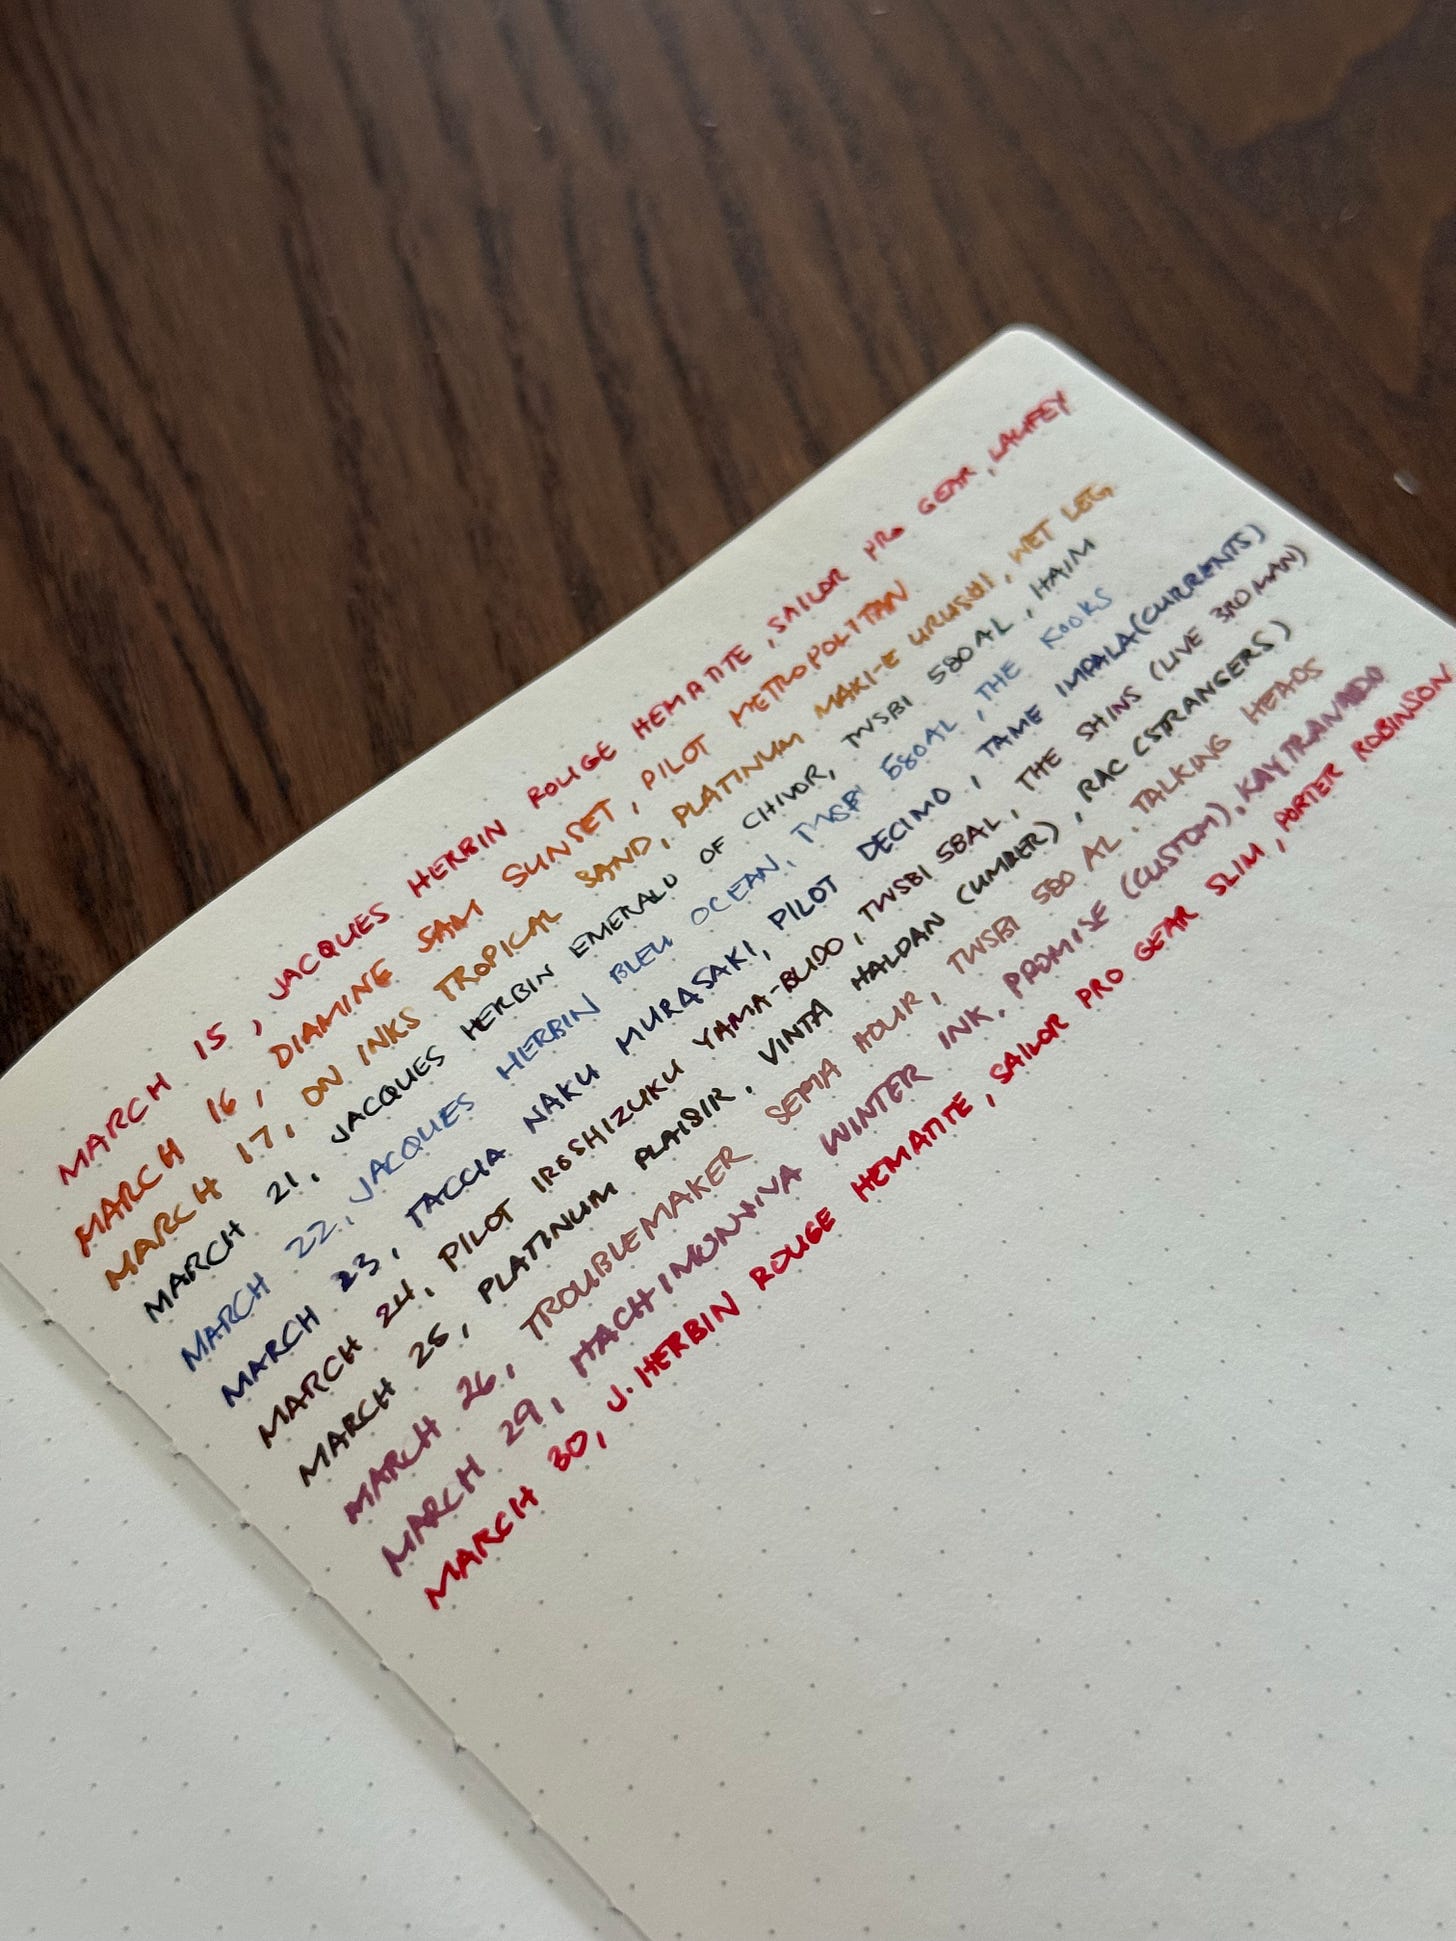 MARCH 15, JACQUES HERBIN ROUGE HEMATITE, SAILOR PRO GEAR, LAUFEY
MARCH 16, DIAMINE SAM SUNSET, PILOT METROPOLITAN
MARCH 17, ON INKS TROPICAL SAND, PLATINUM MAKI-E URUSHI, WET LEG
MARCH 21, JACQUES HERBIN EMERALD OF CHIVOR, TWSBI 580AL, HAIM
MARCH 22, JACQUES HERBIN BLEU OCEAN, TWSBI 580AL, THE KOOKS
MARCH 23, TACCIA NAKU MURASAKI, PILOT DECIMO, TAME IMPALA (CURRENTS)
MARCH 24, PILOT IROSHIZUKU YAMA-BUDO, TWSBI 58AL, THE SHINS (LIVE 3RD MAN)
MARCH 25, PLATINUM PLAISIR, VINTA HALDAN (UMBER), RAC (STRANGERS)
MARCH 26, TROUBLEMAKER SEPIA HOUR, TWSBI 580 AL, TALKING HEADS
MARCH 29, HACHIMONJIYA WINTER INK, PROMISE (CUSTOM), KAYTRANADA
MARCH 30, J. HERBIN ROUGE HEMATITE, SAILOR PRO GEAR SLIM, PORTER ROBINSON